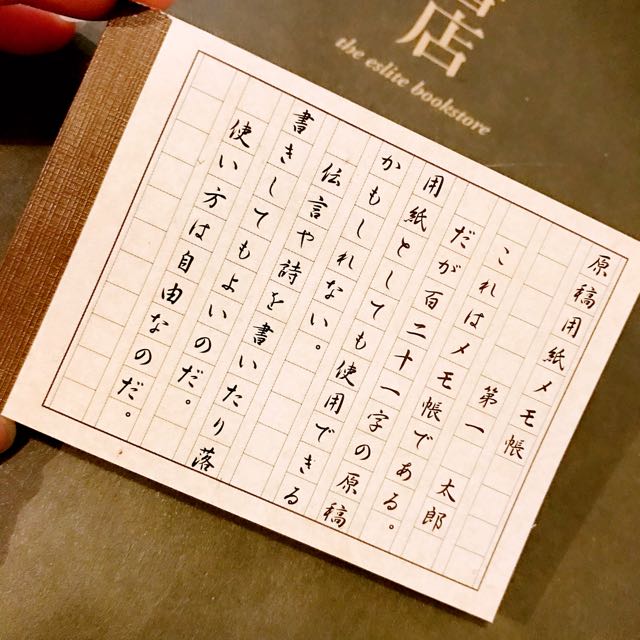 店
the eslite bookstore
原稿用紙メモ帳
第一 太郎
これはメモ帳である。
だが百二十一字の原稿
用紙としても使用できる
かもしれない。
伝言や詩を書いたり落
書きしてもよいのだ。
使い方は自由なのだ。